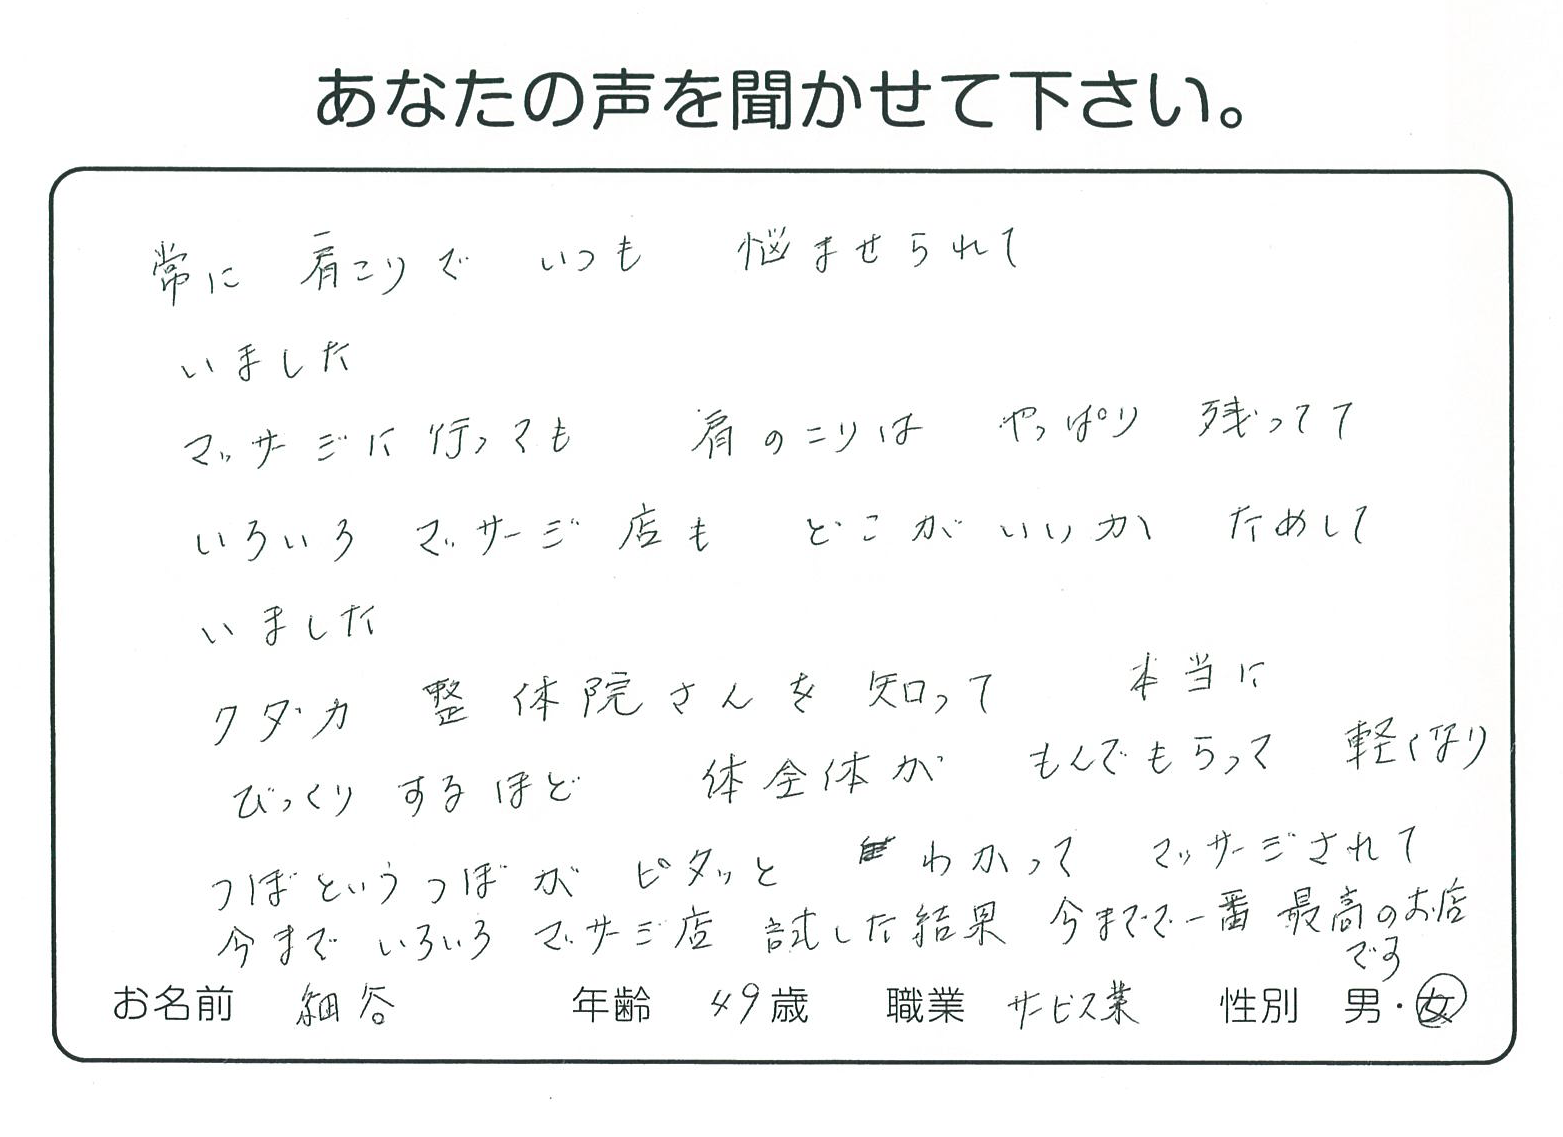 あなたの声を聞かせて下さい。
常に 肩こりで いつも 悩ませられて
いました
マッサージに行っても 肩のこりは やっぱり 残ってて
いろいろ マッサージ店も どこがいいか ためして
いました
クダカ 整体院さんを 知って 本当に
びっくりするほど 体全体が もんでもらって 軽くなり
つぼというつぼが ピタッと わかって マッサージされて
今まで いろいろ マッサージ店 試した結果 今までで一番 最高のお店
です
お名前 細谷 年齢 49歳 職業 サービス業 性別 男・女